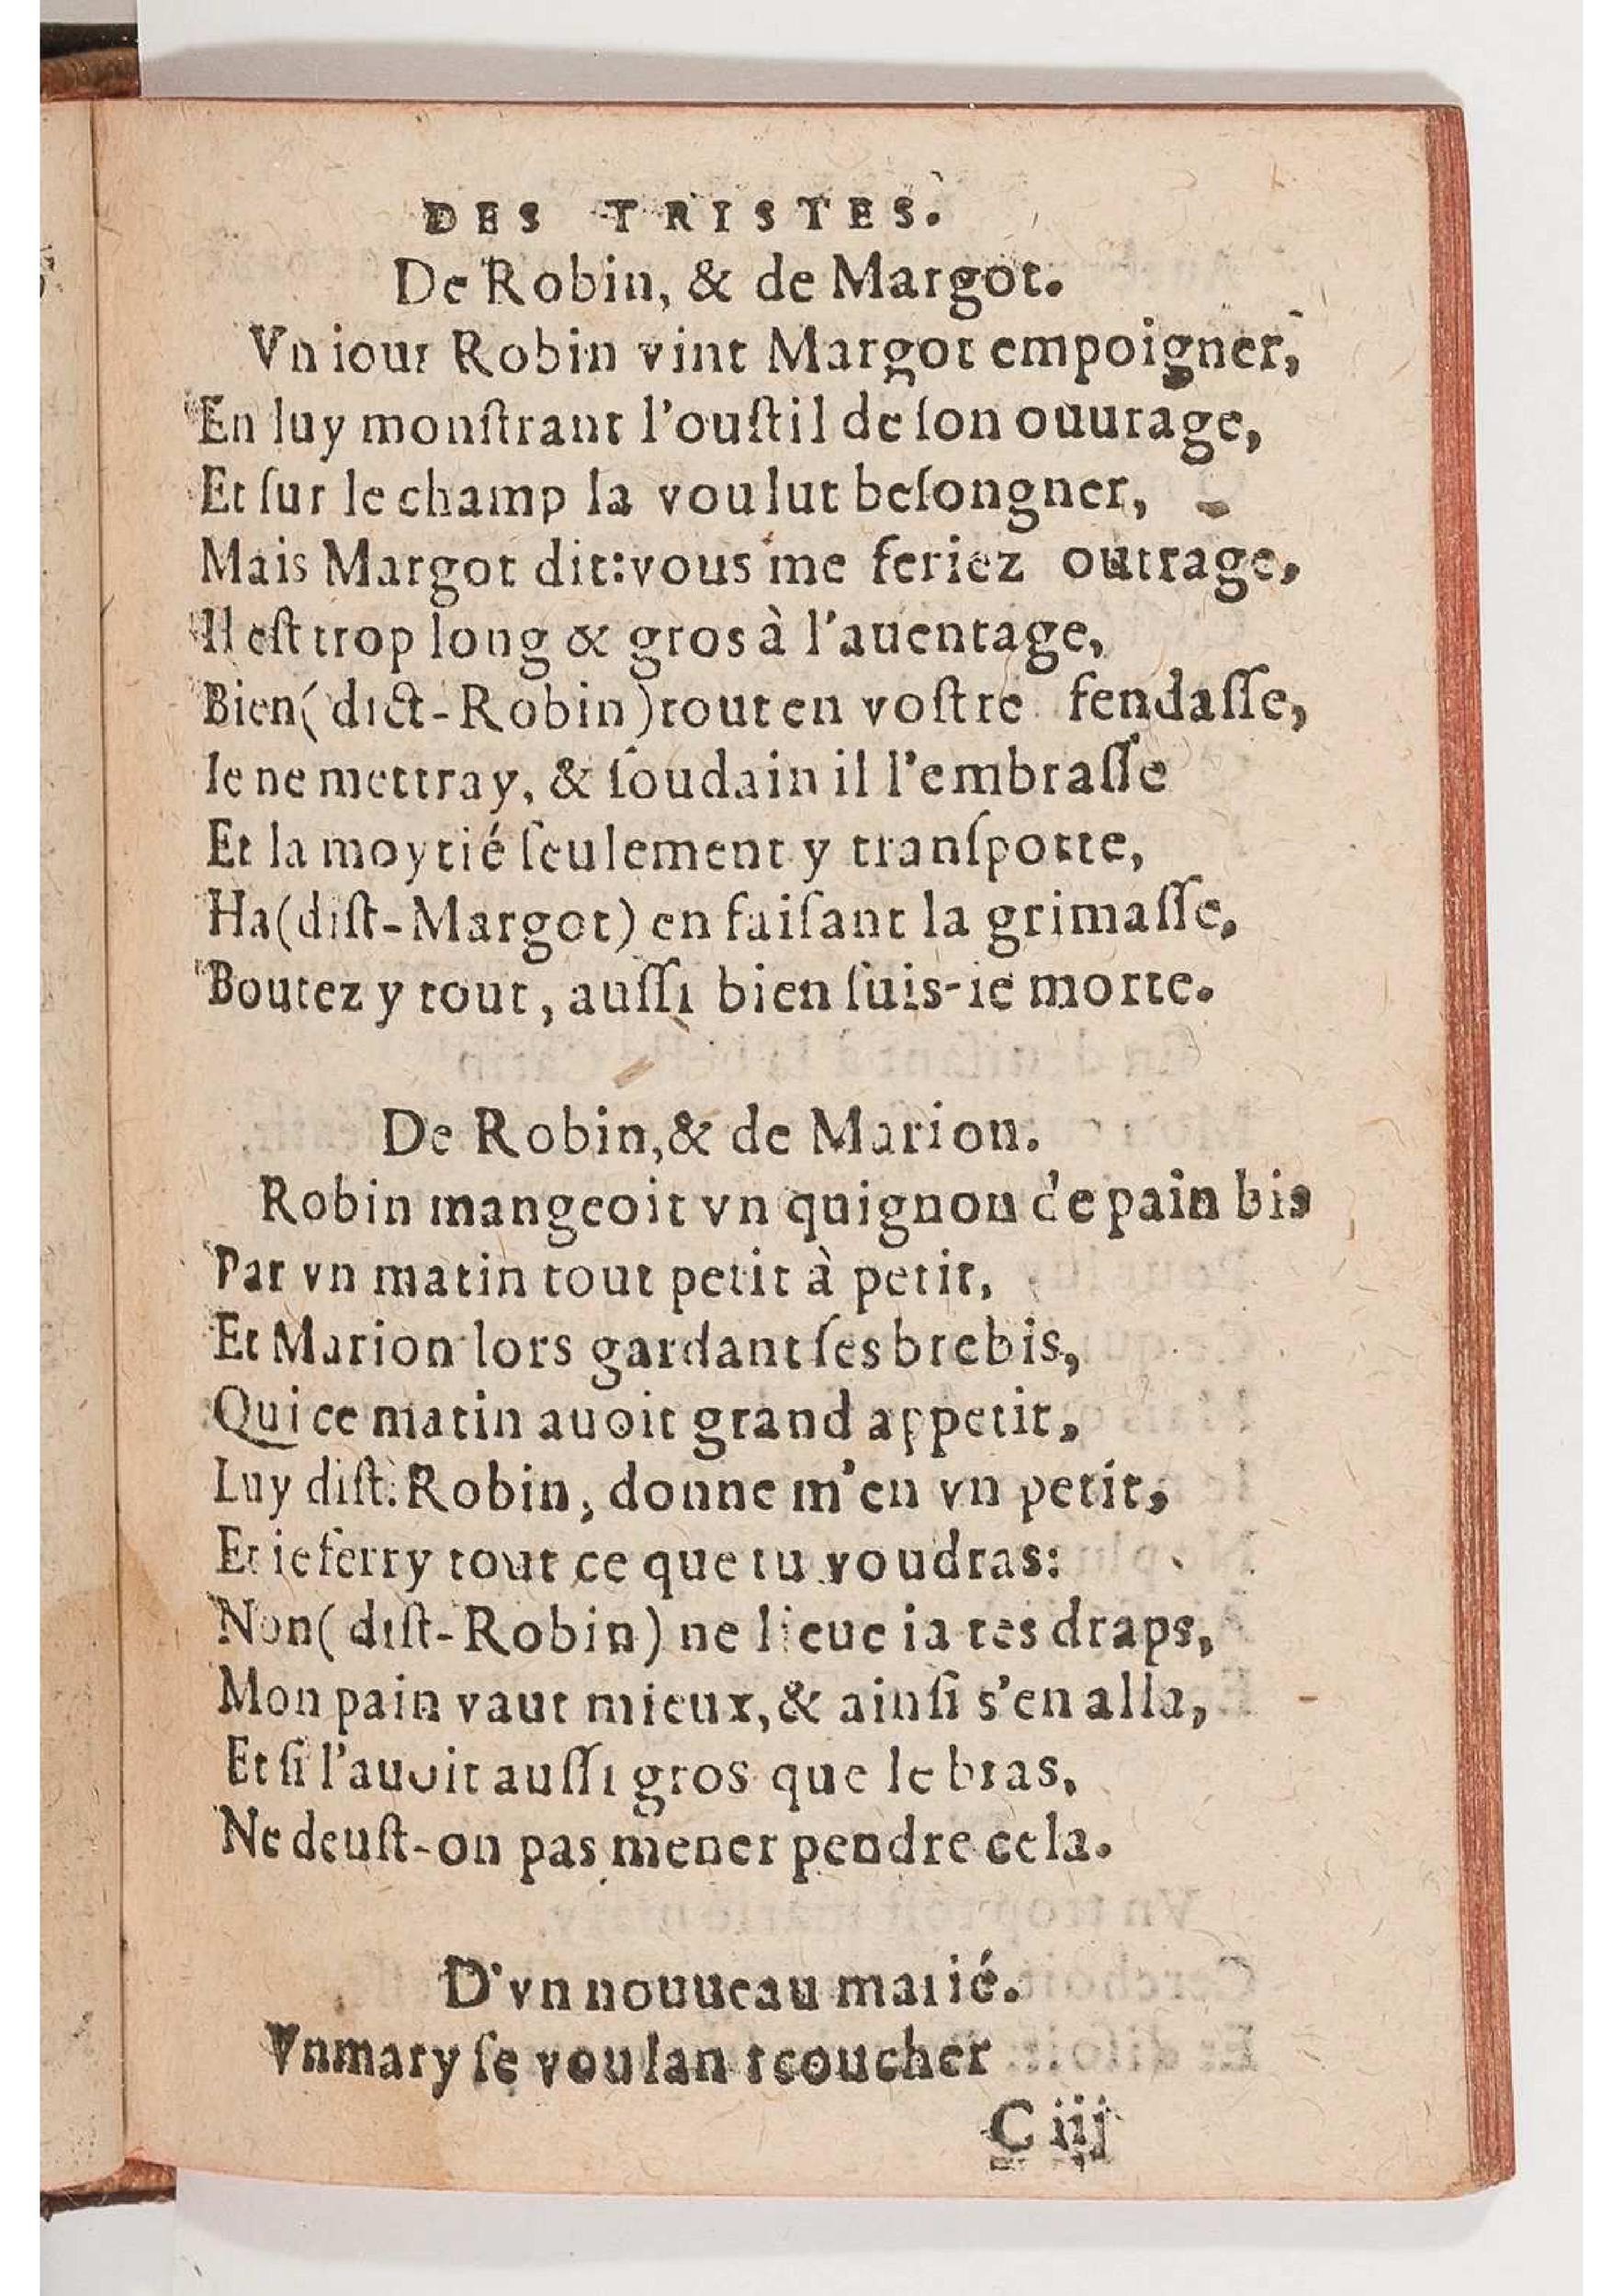 DES TRISTES.
De Robin, & de Margot.
Vn iour Robin vint Margot empoigner,
En luy monſtrant l'ouſtil de ſon ouurage,
Et ſur le champ la voulut beſongner,
Mais Margot dit: vous me feriez outrage,
Il eſt trop long & gros à l'auentage,
Bien (dict-Robin) tout en voſtre fendaſſe,
Ie ne mettray, & ſoudain il l'embraſſe
Et la moytié ſeulement y tranſporte,
Ha (diſt-Margot) en faiſant la grimaſſe,
Boutez y tout, auſſi bien ſuis-ie morte.
De Robin, & de Marion.
Robin mangeoit vn quignon de pain bis
Par vn matin tout petit à petit,
Et Marion lors gardant ſes brebis,
Qui ce matin auoit grand appetit,
Luy diſt: Robin, donne m'en vn petit,
Et ie ferry tout ce que tu voudras:
Non (diſt-Robin) ne lieue ia tes draps,
Mon pain vaut mieux, & ainſi s'en alla,
Et ſi l'auoit auſſi gros que le bras,
Ne deuſt-on pas mener pendre cela.
D'vn nouueau marié.
Vn mary ſe voulan tcoucher
C iij